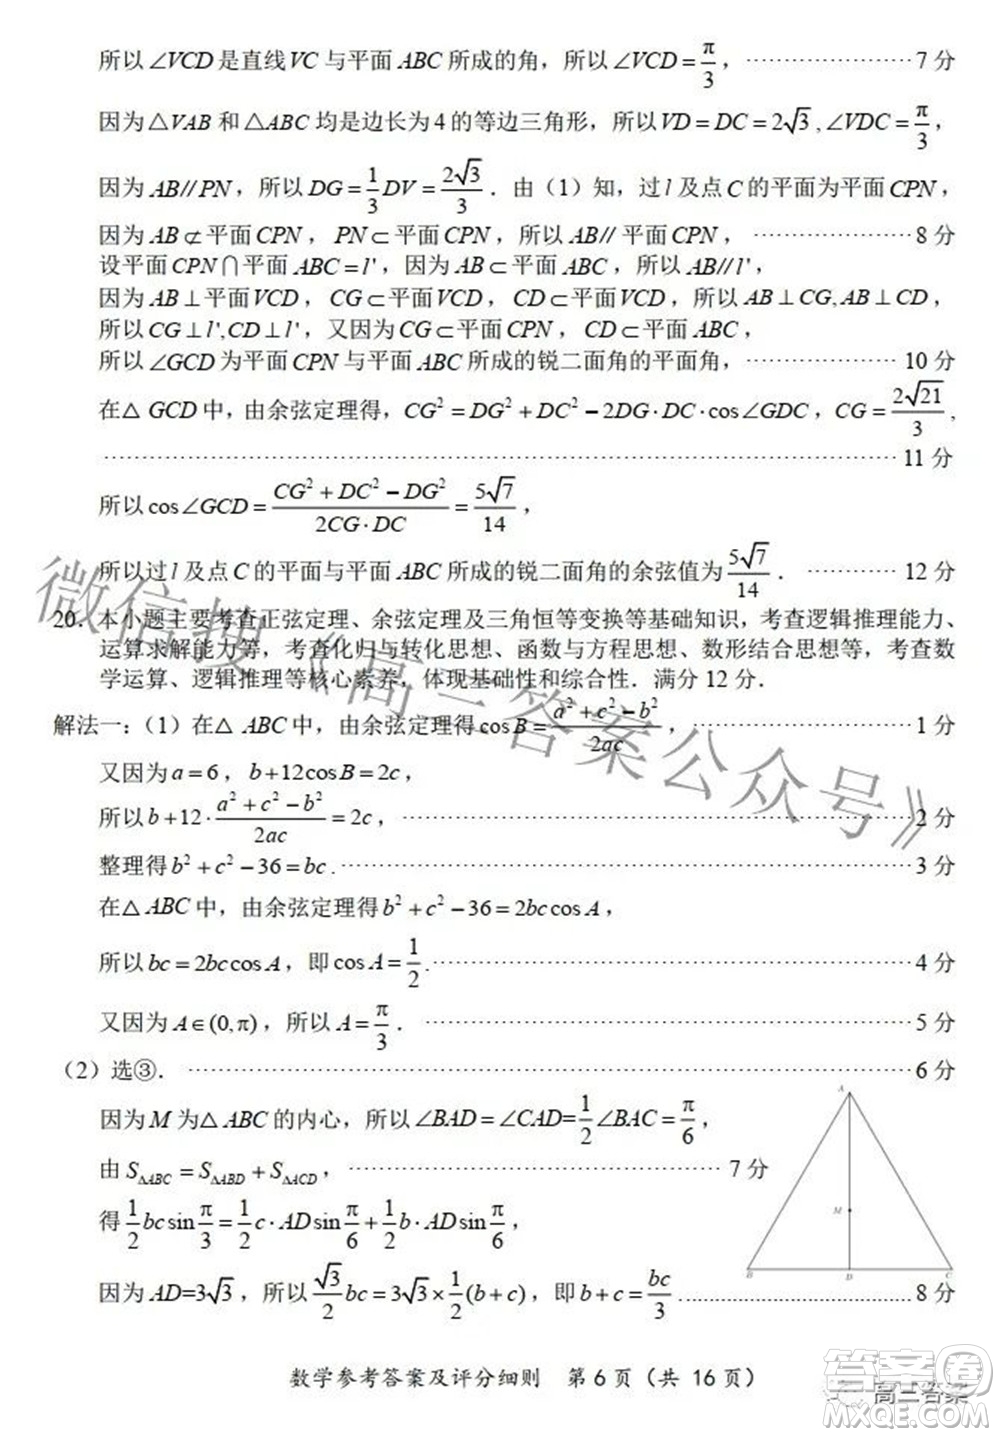 所以∠VCD是直线VC与平面ABC所成的角，所以∠VCD=π/3，……………………7分
因为△VAB和△ABC均是边长为4的等边三角形，所以VD=DC=2√3,∠VDC=π/3，
因为AB//PN，所以DG=1/3DV=2√3/3．由（1）知，过l及点C的平面为平面CPN，
因为AB⊄平面CPN，PN⊂平面CPN，所以AB//平面CPN，……………………8分
设平面CPN∩平面ABC=l'，因为AB⊂平面ABC，所以AB//l'，
因为AB⊥平面VCD，CG⊂平面VCD，CD⊂平面VCD，所以AB⊥CG,AB⊥CD，
所以CG⊥l',CD⊥l'，又因为CG⊂平面CPN，CD⊂平面ABC，
所以∠GCD为平面CPN与平面ABC所成的锐二面角的平面角，……………………10分
在△GCD中，由余弦定理得，CG²=DG²+DC²−2DG·DC·cos∠GDC，CG=2√21/3，
……………………11分
所以cos∠GCD=(CG²+DC²−DG²)/(2CG·DC)=5√7/14，
所以过l及点C的平面与平面ABC所成的锐二面角的余弦值为5√7/14．……………………12分
20．本小题主要考查正弦定理、余弦定理及三角恒等变换等基础知识，考查逻辑推理能力、
运算求解能力等，考查化归与转化思想、函数与方程思想、数形结合思想等，考查数
学运算、逻辑推理等核心素养，体现基础性和综合性．满分12分．
解法一：（1）在△ABC中，由余弦定理得cosB=(a²+c²−b²)/2ac，……………………1分
又因为a=6，b+12cosB=2c，
所以b+12·(a²+c²−b²)/2ac=2c，……………………2分
整理得b²+c²−36=bc．……………………3分
在△ABC中，由余弦定理得b²+c²−36=2bccosA，
所以bc=2bccosA，即cosA=1/2．……………………4分
又因为A∈(0,π)，所以A=π/3．……………………5分
（2）选③．……………………6分
因为M为△ABC的内心，所以∠BAD=∠CAD=1/2∠BAC=π/6，
由S△ABC=S△ABD+S△ACD，……………………7分
得1/2bcsinπ/3=1/2c·ADsinπ/6+1/2b·ADsinπ/6，
因为AD=3√3，所以√3/2bc=3√3×1/2(b+c)，即b+c=bc/3……………………8分
A
M
B
D
C
数学参考答案及评分细则 第6页（共16页）
微信搜《高三答案公众号》
答案圈
高三答案
MXQE.COM